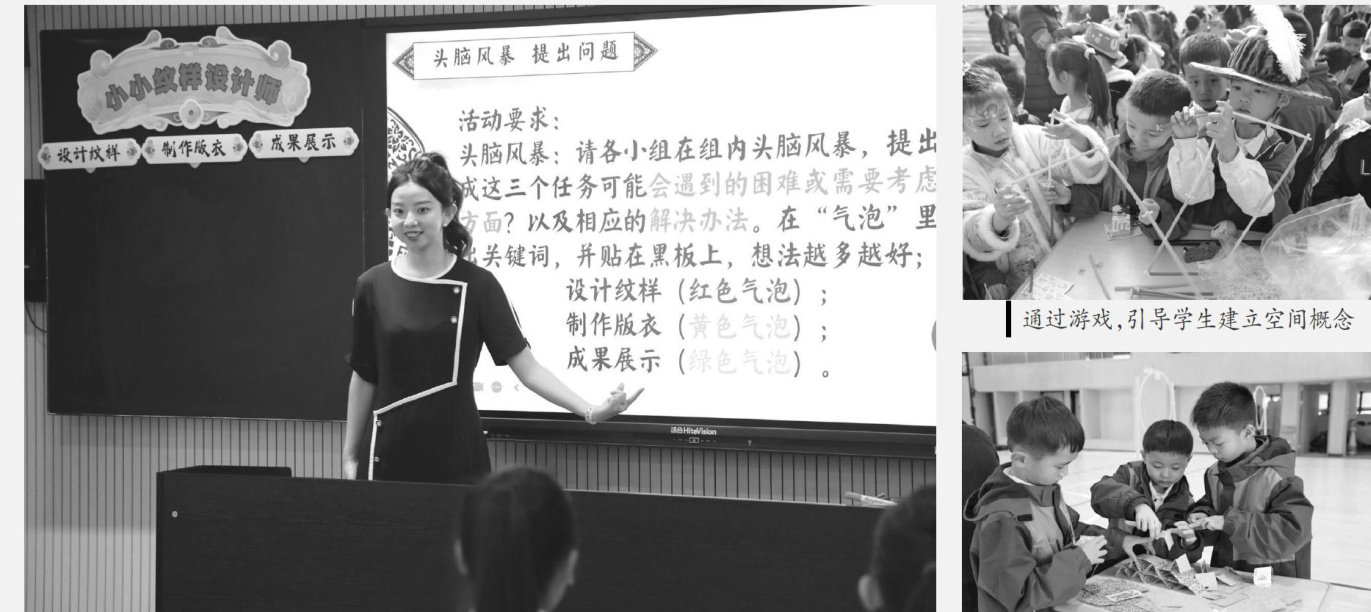 小小纹样设计师
设计纹样
制作版衣
成果展示
头脑风暴 提出问题
活动要求：
头脑风暴：请各小组在组内头脑风暴，提出
成这三个任务可能会遇到的困难或需要考虑
方面？以及相应的解决办法。在“气泡”里
出关键词，并贴在黑板上，想法越多越好；
设计纹样（红色气泡）；
制作版衣（黄色气泡）；
成果展示（绿色气泡）。
HiteVision
通过游戏,引导学生建立空间概念